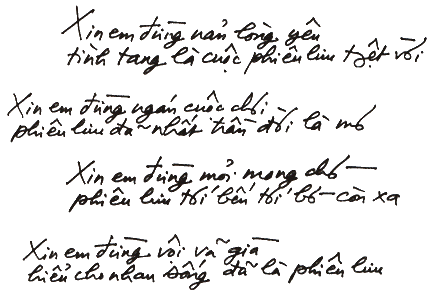 Xin em đừng nản lòng yêu
tình tang là cuộc phiêu lưu tuyệt vời
Xin em đừng ngán cuộc chơi
phiêu lưu đã nhất trần đời là mơ
Xin em đừng mỏi mong chờ
phiêu lưu tới bến tới bờ còn xa
Xin em đừng vội vã già
hiểu cho nhau sống đã là phiêu lưu